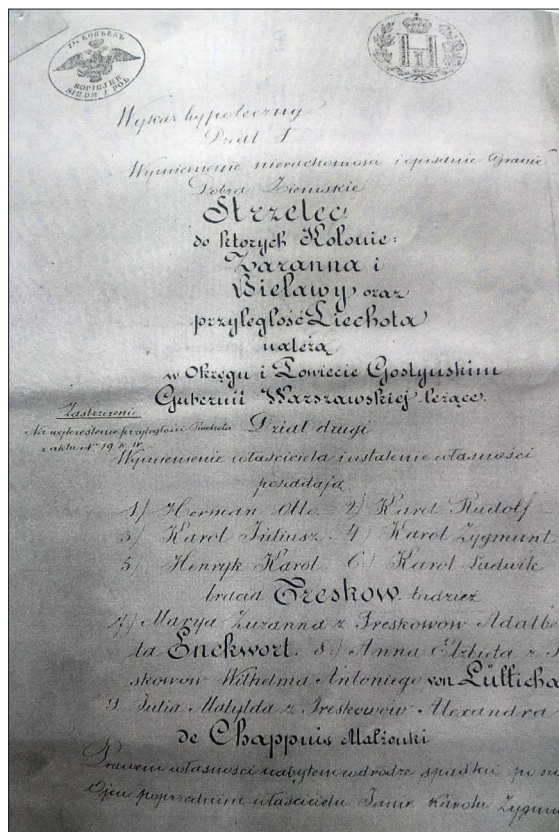 7½ КОПѢЕКЪ
KOPIEJEK
SIEDM I POŁ
Wykaz hypoteczny
Dział I
Wymienienie nieruchomości i opisanie Granic
Dobra Ziemskie
Strzelec
do ktorych Kolonie:
Zaranna i
Bielawy oraz
przyległość Liechota
należą
w Okręgu i Powiecie Gostyńskim
Gubernii Warszawskiej leżące.
Zastrzeżenie
Na wykreślenie przyległości
z aktu Nº 19
Dział drugi
Wymienienie właściciela i ustalenie własności
posiadają
1) Herman Otto. 2) Karol Rudolf
3) Karol Juliusz. 4) Karol Zygmunt
5) Henryk Karol. 6) Karol Ludwik
bracia Treskow. tudzież
7) Marya Zuzanna z Treskowów Adalbe
ta Enckwort. 8) Anna Elżbieta z
skowow Wilhelma Antoniego von Lütticha
9. Julia Matylda z Treskowów Alexandra
de Chappuis Małżonki
Prawem własności nabytem w drodze spadku po
Ojcu poprzednim właścicielu Janie Karolu Zygmu